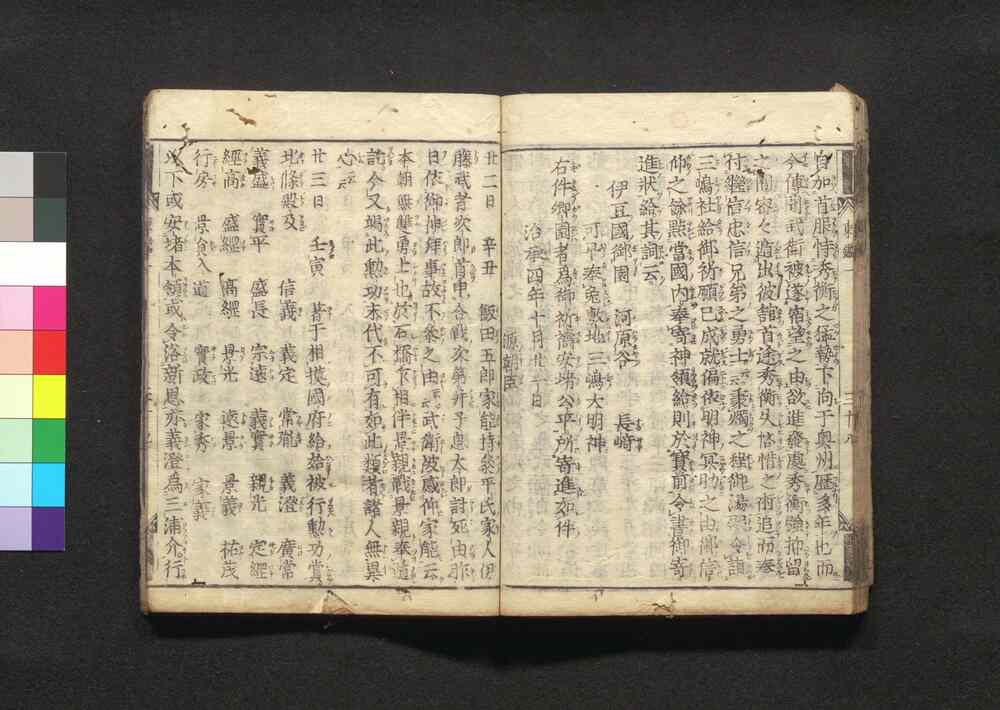 自加首服恃秀衡之猛勢下向于奥州歴多年也而
今傳聞武衛被遂宿望之由欲進發處秀衡強抑留
之間密々遁出彼舘首途秀衡失悋惜之術追而奉
付繼信忠信兄弟之勇士云云秉燭之程御湯殿令詣
三嶋社給御祈願已成就偏依明神冥助之由御信
仰之餘點當國内奉寄神領給則於寳前令書御寄
進状給其詞云
伊豆國御園　河原谷　長﨑
可早奉免敷地三嶋大明神
右件御園者為御祈禱安堵公平所寄進如件
治承四年十月廿一日
源朝臣
廿二日　辛丑　飯田五郎家能持參平氏家人伊
藤武者次郎首申合戰次第并子息太郎討死由昨
日依御神拜事故不參之由云云武衛被感仰家能云
本朝無雙勇士也於石橋乍相伴景親戰景親奉遁
訖今又竭此勲功末代不可有如此類者諸人無異
心云云
廿三日　壬寅　著于相摸國府給始被行勲功賞
北條殿及　信義　義定　常胤　義澄　廣常
義盛　實平　盛長　宗遠　義實　親光　定綱
經高　盛綱　高綱　景光　遠景　景義　祐茂
行房　景員入道　實政　家秀　家義
以下或安堵本領或令浴新恩亦義澄為三浦介行